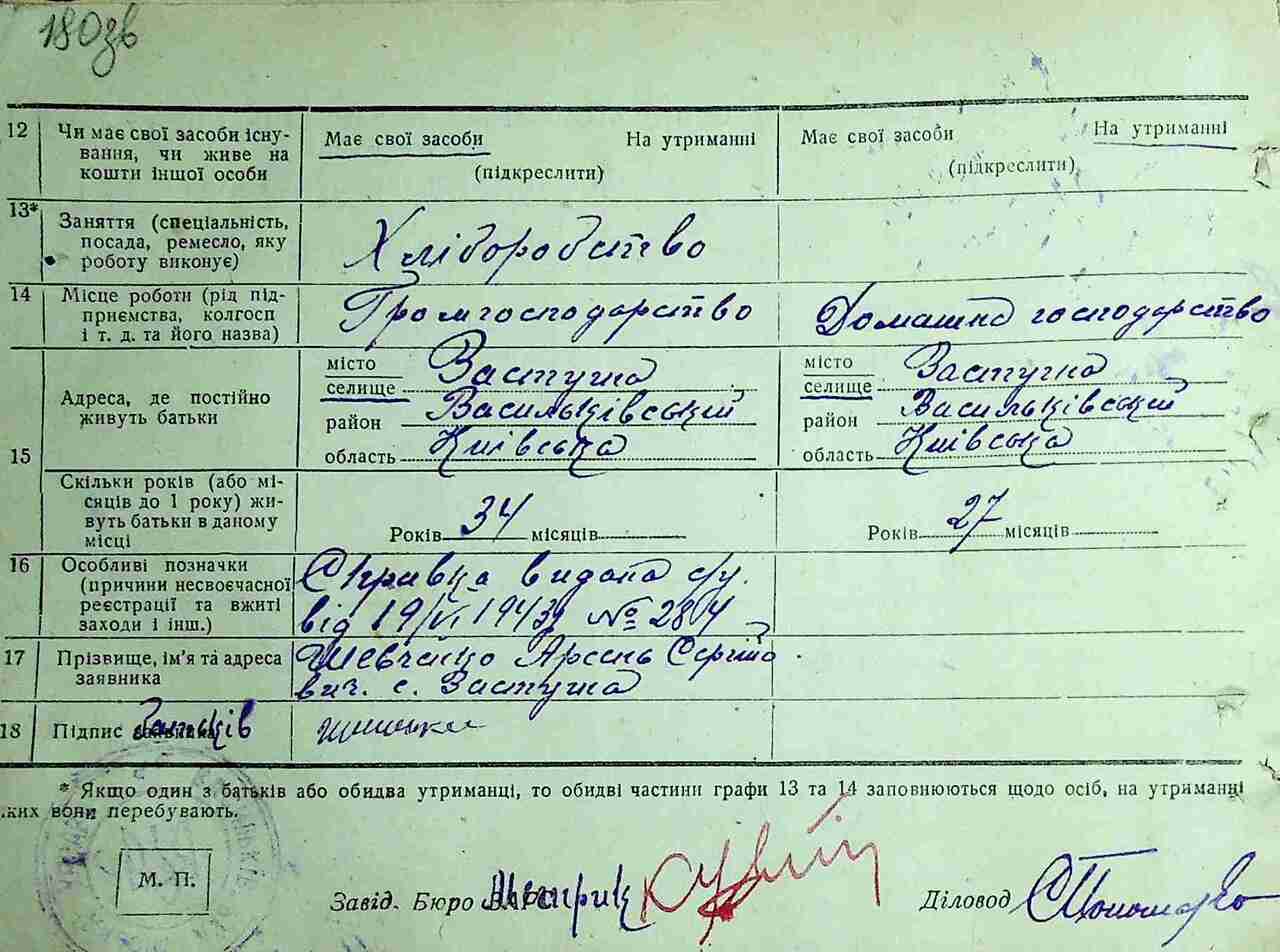 180зв
12 Чи має свої засоби існу-
вання, чи живе на
кошти іншої особи
Має свої засоби На утриманні
(підкреслити)
Має свої засоби На утриманні
(підкреслити)
13* Заняття (спеціальність,
посада, ремесло, яку
роботу виконує)
Хліборобство
14 Місце роботи (рід під-
приємства, колгосп
і т. д. та його назва)
Громгосподарство
Домашнє господарство
15 Адреса, де постійно
живуть батьки
місто
селище Застугна
район Васильківський
область Київська
місто
селище Застугна
район Васильківський
область Київська
Скільки років (або мі-
сяців до 1 року) жи-
вуть батьки в даному
місці
Років 34 місяців
Років 27 місяців
16 Особливі позначки
(причини несвоєчасної
реєстрації та вжиті
заходи і інш.)
Справка видана с/у.
від 19/VI 1943р № 284
17 Прізвище, ім'я та адреса
заявника
Шевченко Арсень Сергійо
вич. с. Застугна
18 Підпис батьків
* Якщо один з батьків або обидва утриманці, то обидві частини графи 13 та 14 заповнюються щодо осіб, на утриманні
яких вони перебувають.
М. П.
Завід. Бюро
Діловод